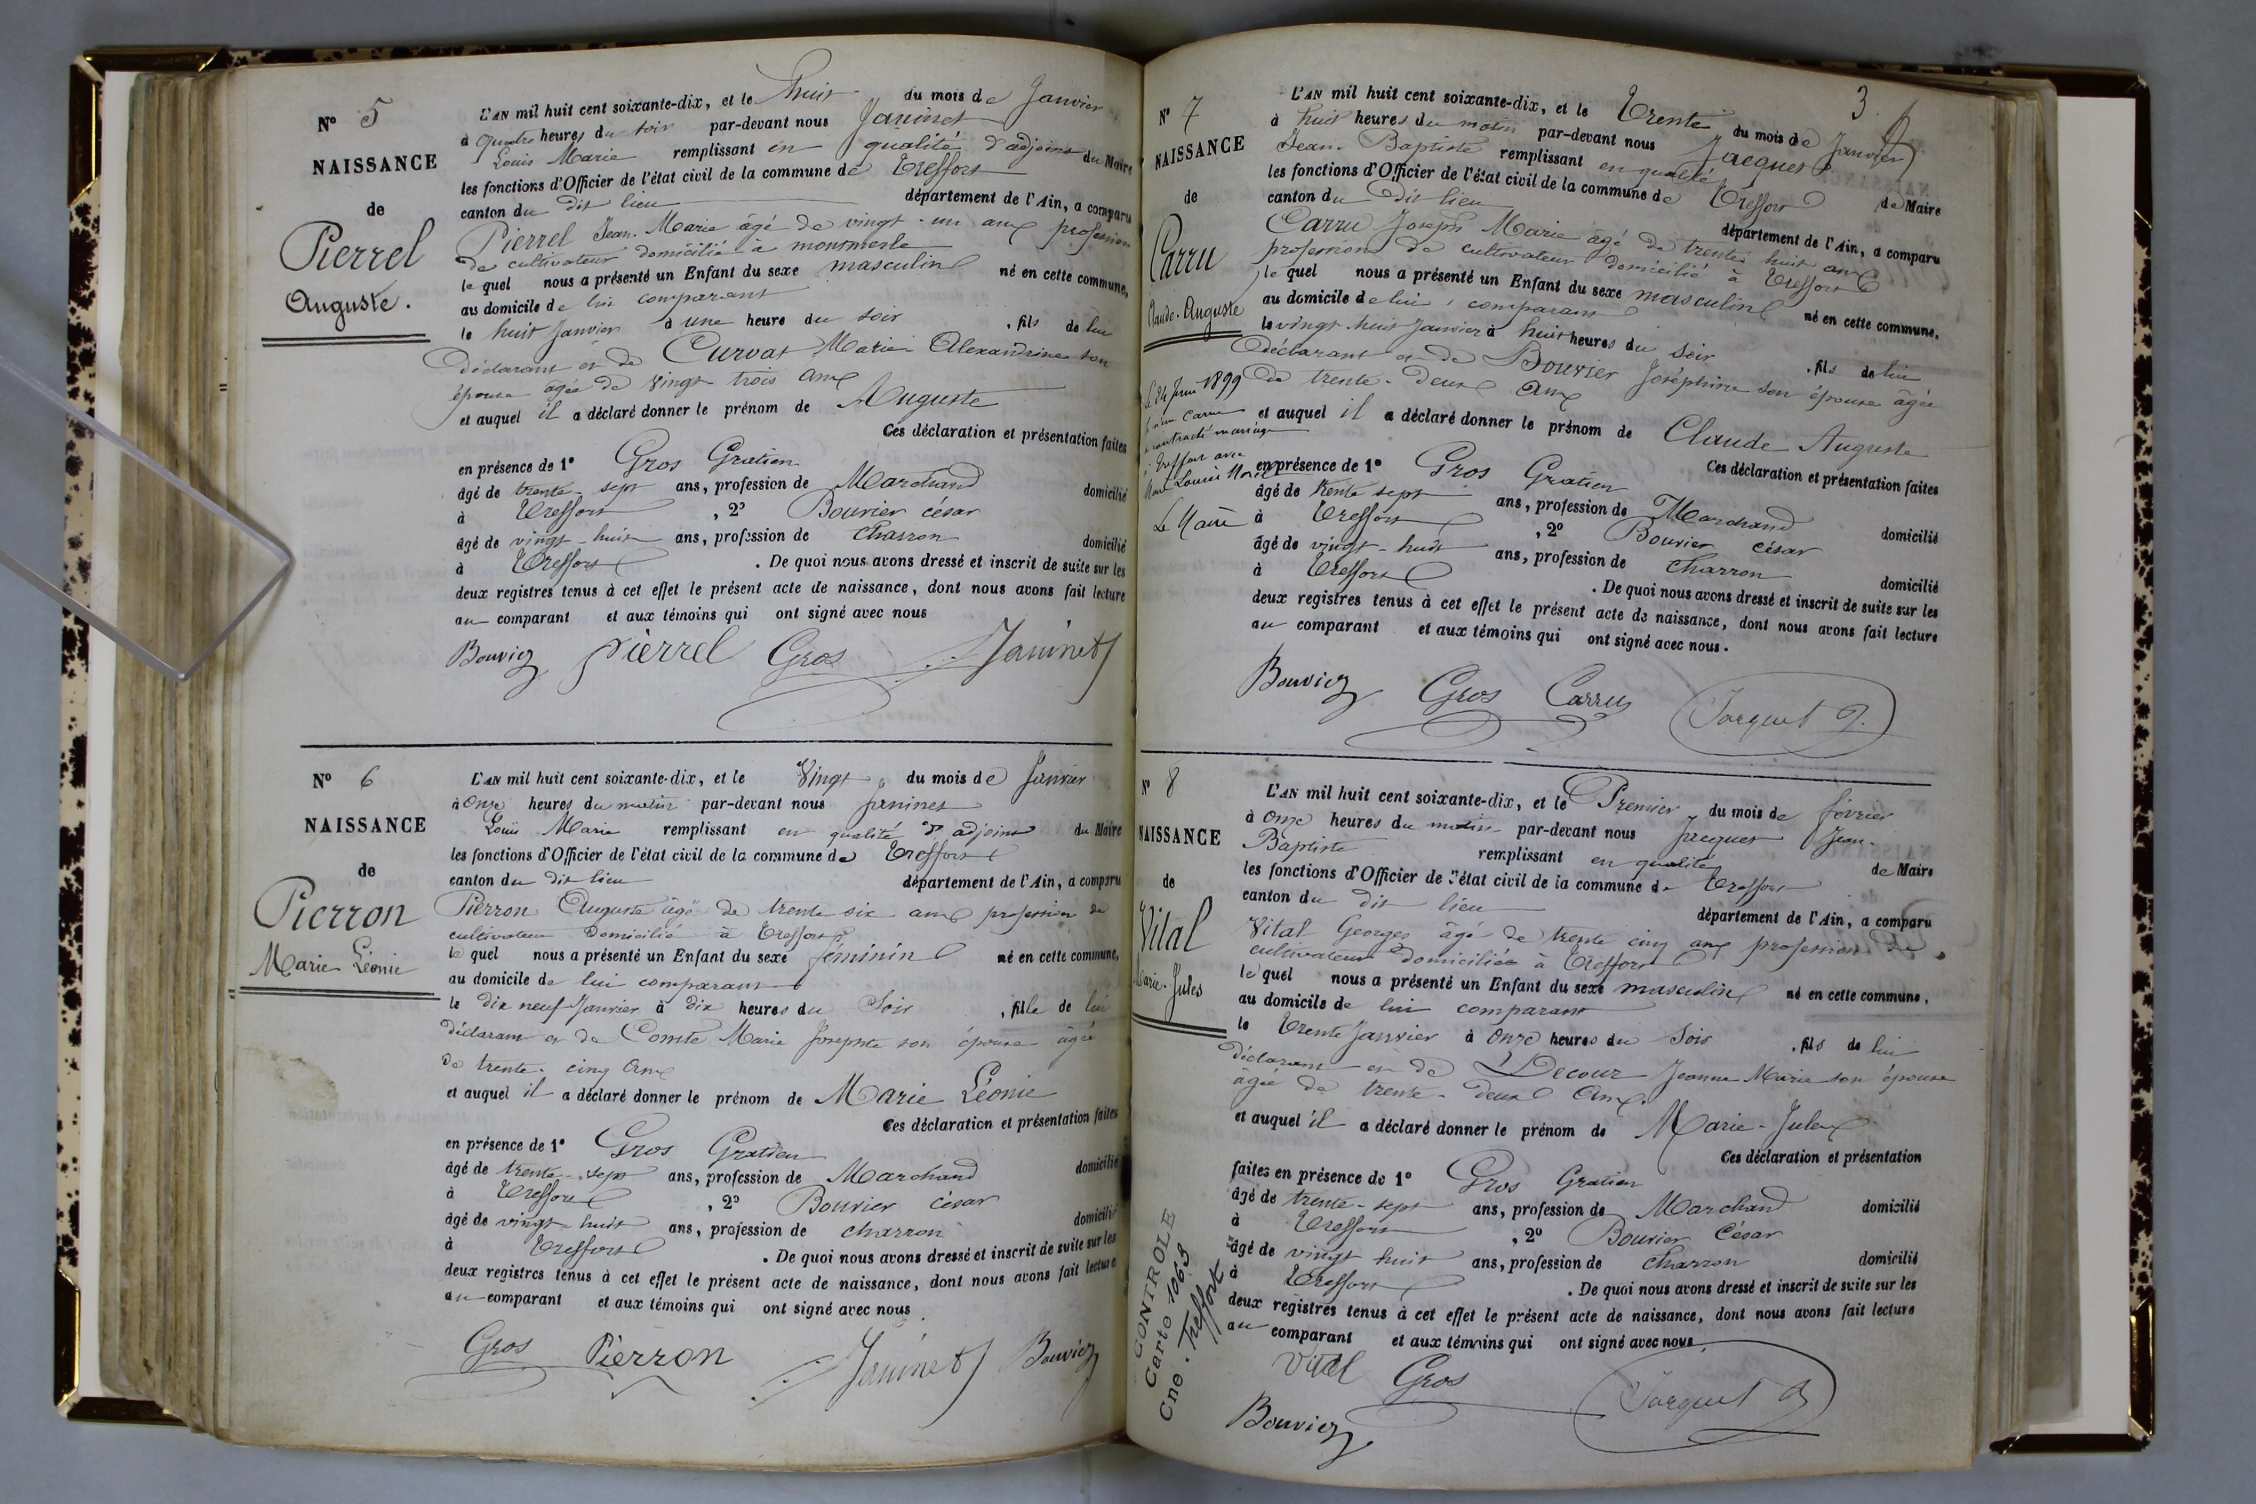 N° 5
NAISSANCE
de
Pierrel
Auguste.
L'AN mil huit cent soixante-dix, et le huit du mois de Janvier
à quatre heures du soir par-devant nous Janinet
Louis Marie remplissant en qualité d'adjoint du Maire
les fonctions d'Officier de l'état civil de la commune de Treffort
canton du dit lieu département de l'Ain, a comparu
Pierrel Jean-Marie âgé de vingt-un ans profession
de cultivateur domicilié à montmerle
le quel nous a présenté un Enfant du sexe masculin né en cette commune,
au domicile de lui comparant
le huit Janvier à une heure du soir, fils de lui
déclarant et de Curvat Marie Alexandrine son
épouse âgée de vingt-trois ans
et auquel il a déclaré donner le prénom de Auguste
Ces déclaration et présentation faites
en présence de 1° Gros Gratien
âgé de trente-sept ans, profession de Marchand domicilié
à Treffort, 2° Bouvier césar
âgé de vingt-huit ans, profession de charron domicilié
à Treffort. De quoi nous avons dressé et inscrit de suite sur les
deux registres tenus à cet effet le présent acte de naissance, dont nous avons fait lecture
au comparant et aux témoins qui ont signé avec nous
Bouvier pierrel Gros Janinet
N° 6
NAISSANCE
de
Pierron
Marie Léonie
L'AN mil huit cent soixante-dix, et le Vingt du mois de Janvier
à onze heures du matin par-devant nous Janinet
Louis Marie remplissant en qualité d'adjoint du Maire
les fonctions d'Officier de l'état civil de la commune de Treffort
canton du dit lieu département de l'Ain, a comparu
Pierron Auguste âgé de trente six ans profession de
cultivateur domicilié à Treffort
le quel nous a présenté un Enfant du sexe féminin né en cette commune,
au domicile de lui comparant
le dix neuf Janvier à dix heures du Soir, fille de lui
déclarant et de Comte Marie Josephte son épouse âgée
de trente-cinq ans
et auquel il a déclaré donner le prénom de Marie Léonie
Ces déclaration et présentation faites
en présence de 1° Gros Gratien
âgé de trente-sept ans, profession de Marchand domicilié
à Treffort, 2° Bouvier césar
âgé de vingt-huit ans, profession de charron domicilié
à Treffort. De quoi nous avons dressé et inscrit de suite sur les
deux registres tenus à cet effet le présent acte de naissance, dont nous avons fait lecture
au comparant et aux témoins qui ont signé avec nous
Gros Pièrron Janinet Bouvier
3
N° 7
NAISSANCE
de
Carru
Claude-Auguste
Le 24 Juin 1899
Carru
a contracté mariage
à Treffort avec
Marie Louise
Le Maire
L'AN mil huit cent soixante-dix, et le Trente du mois de Janvier
à huit heures du matin par-devant nous Jacquet
Jean-Baptiste remplissant en qualité de Maire
les fonctions d'Officier de l'état civil de la commune de Treffort
canton du dit lieu département de l'Ain, a comparu
Carru Joseph Marie âgé de trente huit ans
profession de cultivateur domicilié à Treffort
le quel nous a présenté un Enfant du sexe masculin né en cette commune,
au domicile de lui comparant
le vingt-huit Janvier à huit heures du Soir, fils de lui
déclarant et de Bouvier Joséphine son épouse âgée
de trente-deux ans
et auquel il a déclaré donner le prénom de Claude Auguste
Ces déclaration et présentation faites
en présence de 1° Gros Gratien
âgé de trente sept ans, profession de Marchand domicilié
à Treffort, 2° Bouvier césar
âgé de vingt-huit ans, profession de charron domicilié
à Treffort. De quoi nous avons dressé et inscrit de suite sur les
deux registres tenus à cet effet le présent acte de naissance, dont nous avons fait lecture
au comparant et aux témoins qui ont signé avec nous.
Bouvier Gros Carru Jacquet
N° 8
NAISSANCE
de
Vital
Marie-Jules
L'AN mil huit cent soixante-dix, et le Premier du mois de février
à onze heures du matin par-devant nous Jacquet Jean-
Baptiste remplissant en qualité de Maire
les fonctions d'Officier de l'état civil de la commune de Treffort
canton du dit lieu département de l'Ain, a comparu
Vital Georges âgé de trente cinq ans profession de
cultivateur domicilié à Treffort
le quel nous a présenté un Enfant du sexe masculin né en cette commune,
au domicile de lui comparant
le Trente Janvier à onze heures du Soir, fils de lui
déclarant et de Decour Jeanne Marie son épouse
âgée de trente-deux ans.
et auquel il a déclaré donner le prénom de Marie-Jules
Ces déclaration et présentation
faites en présence de 1° Gros Gratien
âgé de trente-sept ans, profession de Marchand domicilié
à Treffort, 2° Bouvier César
âgé de vingt huit ans, profession de charron domicilié
à Treffort. De quoi nous avons dressé et inscrit de suite sur les
deux registres tenus à cet effet le présent acte de naissance, dont nous avons fait lecture
au comparant et aux témoins qui ont signé avec nous
Vital Gros Jacquet
Bouvier
CONTROLE
Carte 1063
Cne. Treffort